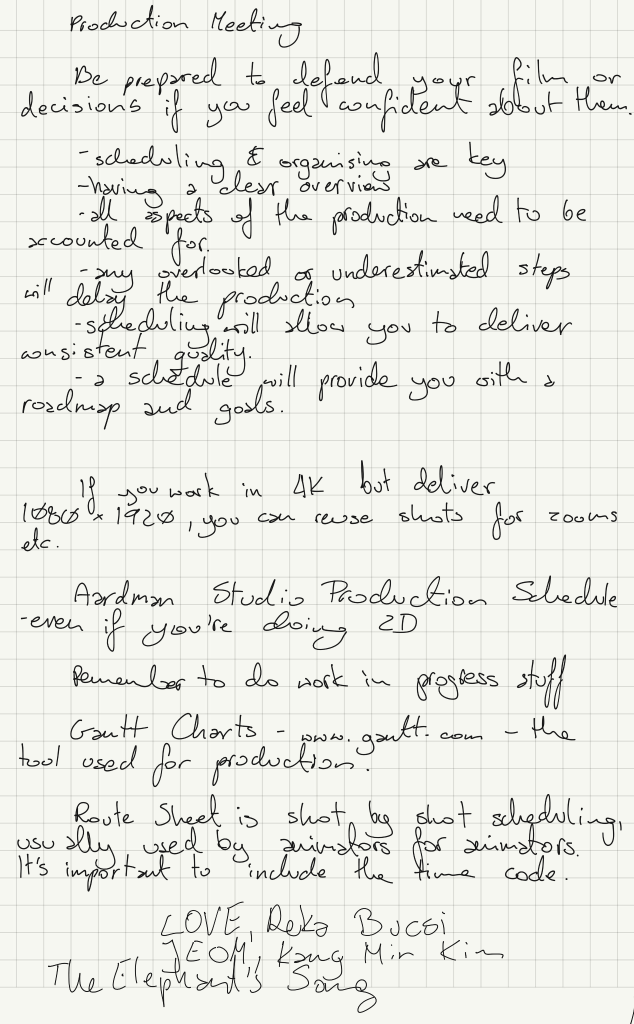 Production Meeting
Be prepared to defend your film or
decisions if you feel confident about them.
-scheduling & organising are key
-having a clear overview
-all aspects of the production need to be
accounted for.
-any overlooked or underestimated steps
will delay the production
-scheduling will allow you to deliver
consistent quality.
- a schedule will provide you with a
roadmap and goals.
If you work in 4K but deliver
1080 x 1920, you can reuse shots for zooms
etc.
Aardman Studio Production Schedule
-even if you're doing 2D
Remember to do work in progress stuff
Gantt Charts - www.gantt.com - the
tool used for production.
Route Sheet is shot by shot scheduling,
usually used by animators for animators.
It's important to include the time code.
LOVE, Reka Bucsi
JEOM, Kang Min Kim
The Elephant's Song